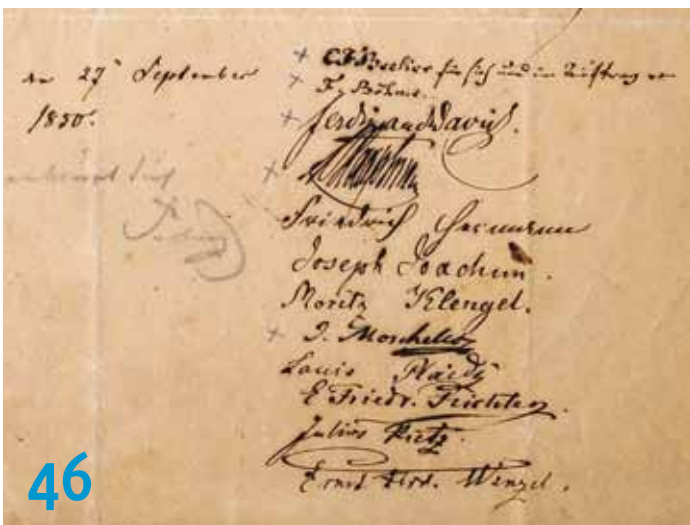 den 27 September
1850.
+ C. F. Becker für sich und im Auftrag von
+ F. Böhme.
+ Ferdinand David.
+
Friedrich Hermann
Joseph Joachim.
Moritz Klengel.
+ I. Moscheles
Louis Plaidy
E Friedr. Richter.
Julius Rietz.
Ernst Ferd. Wenzel.
46